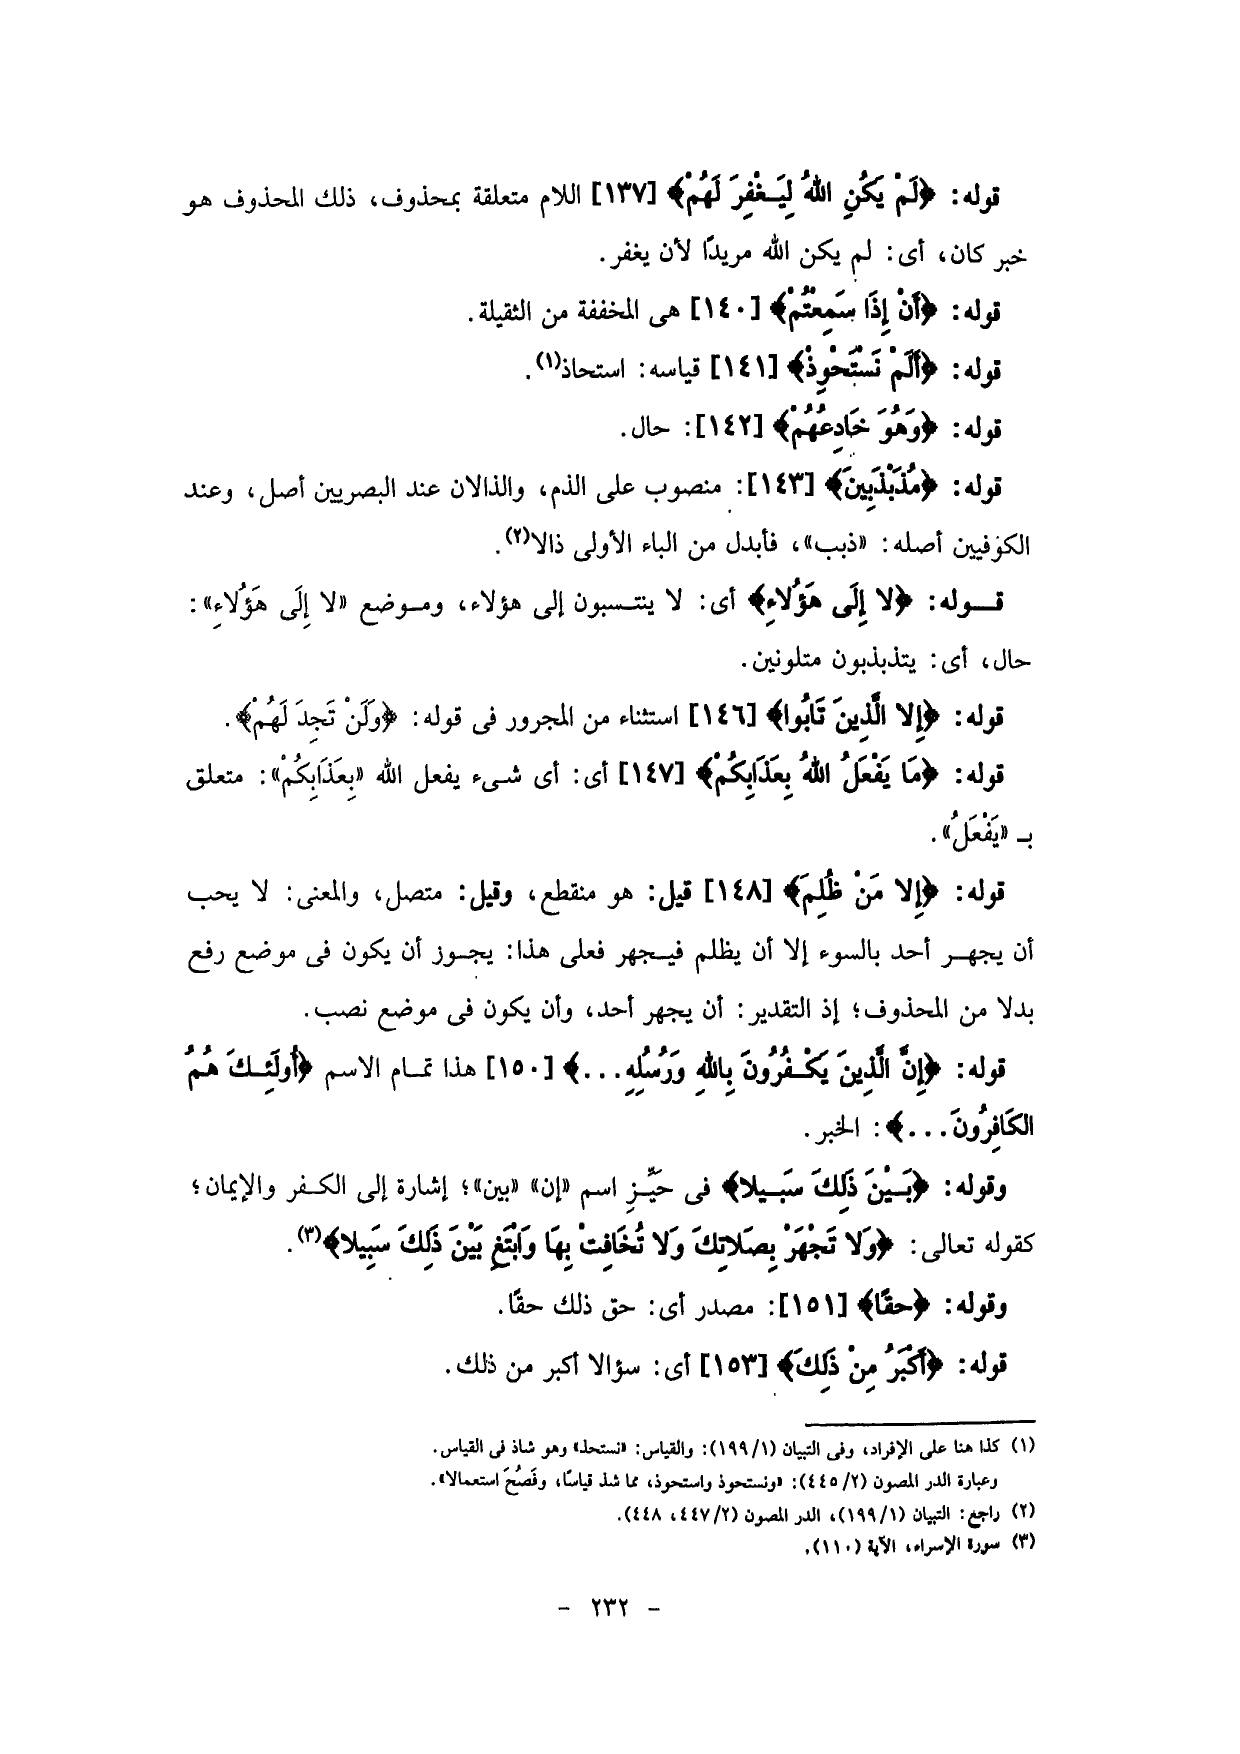 قوله: ﴿لَمْ يَكُنِ اللهُ لِيَغْفِرَ لَهُمْ﴾ [١٣٧] اللام متعلقة بمحذوف، ذلك المحذوف هو
خبر كان، أى: لم يكن الله مريدًا لأن يغفر.
قوله: ﴿أَنْ إِذَا سَمِعْتُمْ﴾ [١٤٠] هى المخففة من الثقيلة.
قوله: ﴿أَلَمْ نَسْتَحْوِذْ﴾ [١٤١] قياسه: استحاذ(١).
قوله: ﴿وَهُوَ خَادِعُهُمْ﴾ [١٤٢]: حال.
قوله: ﴿مُذَبْذَبِينَ﴾ [١٤٣]: منصوب على الذم، والذالان عند البصريين أصل، وعند
الكوفيين أصله: «ذبب»، فأبدل من الباء الأولى ذالا(٢).
قـوله: ﴿لا إِلَى هَؤُلاءِ﴾ أى: لا ينتسبون إلى هؤلاء، وموضع «لا إِلَى هَؤُلاءِ»:
حال، أى: يتذبذبون متلونين.
قوله: ﴿إِلا الَّذِينَ تَابُوا﴾ [١٤٦] استثناء من المجرور فى قوله: ﴿وَلَنْ تَجِدَ لَهُمْ﴾.
قوله: ﴿مَا يَفْعَلُ اللهُ بِعَذَابِكُمْ﴾ [١٤٧] أى: أى شىء يفعل الله «بِعَذَابِكُمْ»: متعلق
بـ «يَفْعَلُ».
قوله: ﴿إِلا مَنْ ظُلِمَ﴾ [١٤٨] قيل: هو منقطع، وقيل: متصل، والمعنى: لا يحب
أن يجهـر أحد بالسوء إلا أن يظلم فيـجهر فعلى هذا: يجـوز أن يكون فى موضع رفع
بدلا من المحذوف؛ إذ التقدير: أن يجهر أحد، وأن يكون فى موضع نصب.
قوله: ﴿إِنَّ الَّذِينَ يَكْفُرُونَ بِاللهِ وَرُسُلِهِ...﴾ [١٥٠] هذا تمـام الاسم ﴿أُولَئِـكَ هُمُ
الكَافِرُونَ...﴾: الخبر.
وقوله: ﴿بَـيْنَ ذَلِكَ سَبـِيلا﴾ فى حَيِّـزِ اسم «إن» «بين»؛ إشارة إلى الكـفر والإيمان؛
كقوله تعالى: ﴿وَلا تَجْهَرْ بِصَلاتِكَ وَلا تُخَافِتْ بِهَا وَابْتَغِ بَيْنَ ذَلِكَ سَبِيلا﴾(٣).
وقوله: ﴿حقًا﴾ [١٥١]: مصدر أى: حق ذلك حقًا.
قوله: ﴿أَكْبَرُ مِنْ ذَلِكَ﴾ [١٥٣] أى: سؤالا أكبر من ذلك.
(١) كذا هنا على الإفراد، وفى التبيان (١/١٩٩): والقياس: «نستحذ» وهو شاذ فى القياس.
وعبارة الدر المصون (٢/٤٤٥): «ونستحوذ واستحوذ، مما شذ قياسًا، وفَصُحَ استعمالا».
(٢) راجع: التبيان (١/١٩٩)، الدر المصون (٢/٤٤٧، ٤٤٨).
(٣) سورة الإسراء، الآية (١١٠).
- ٢٣٢ -